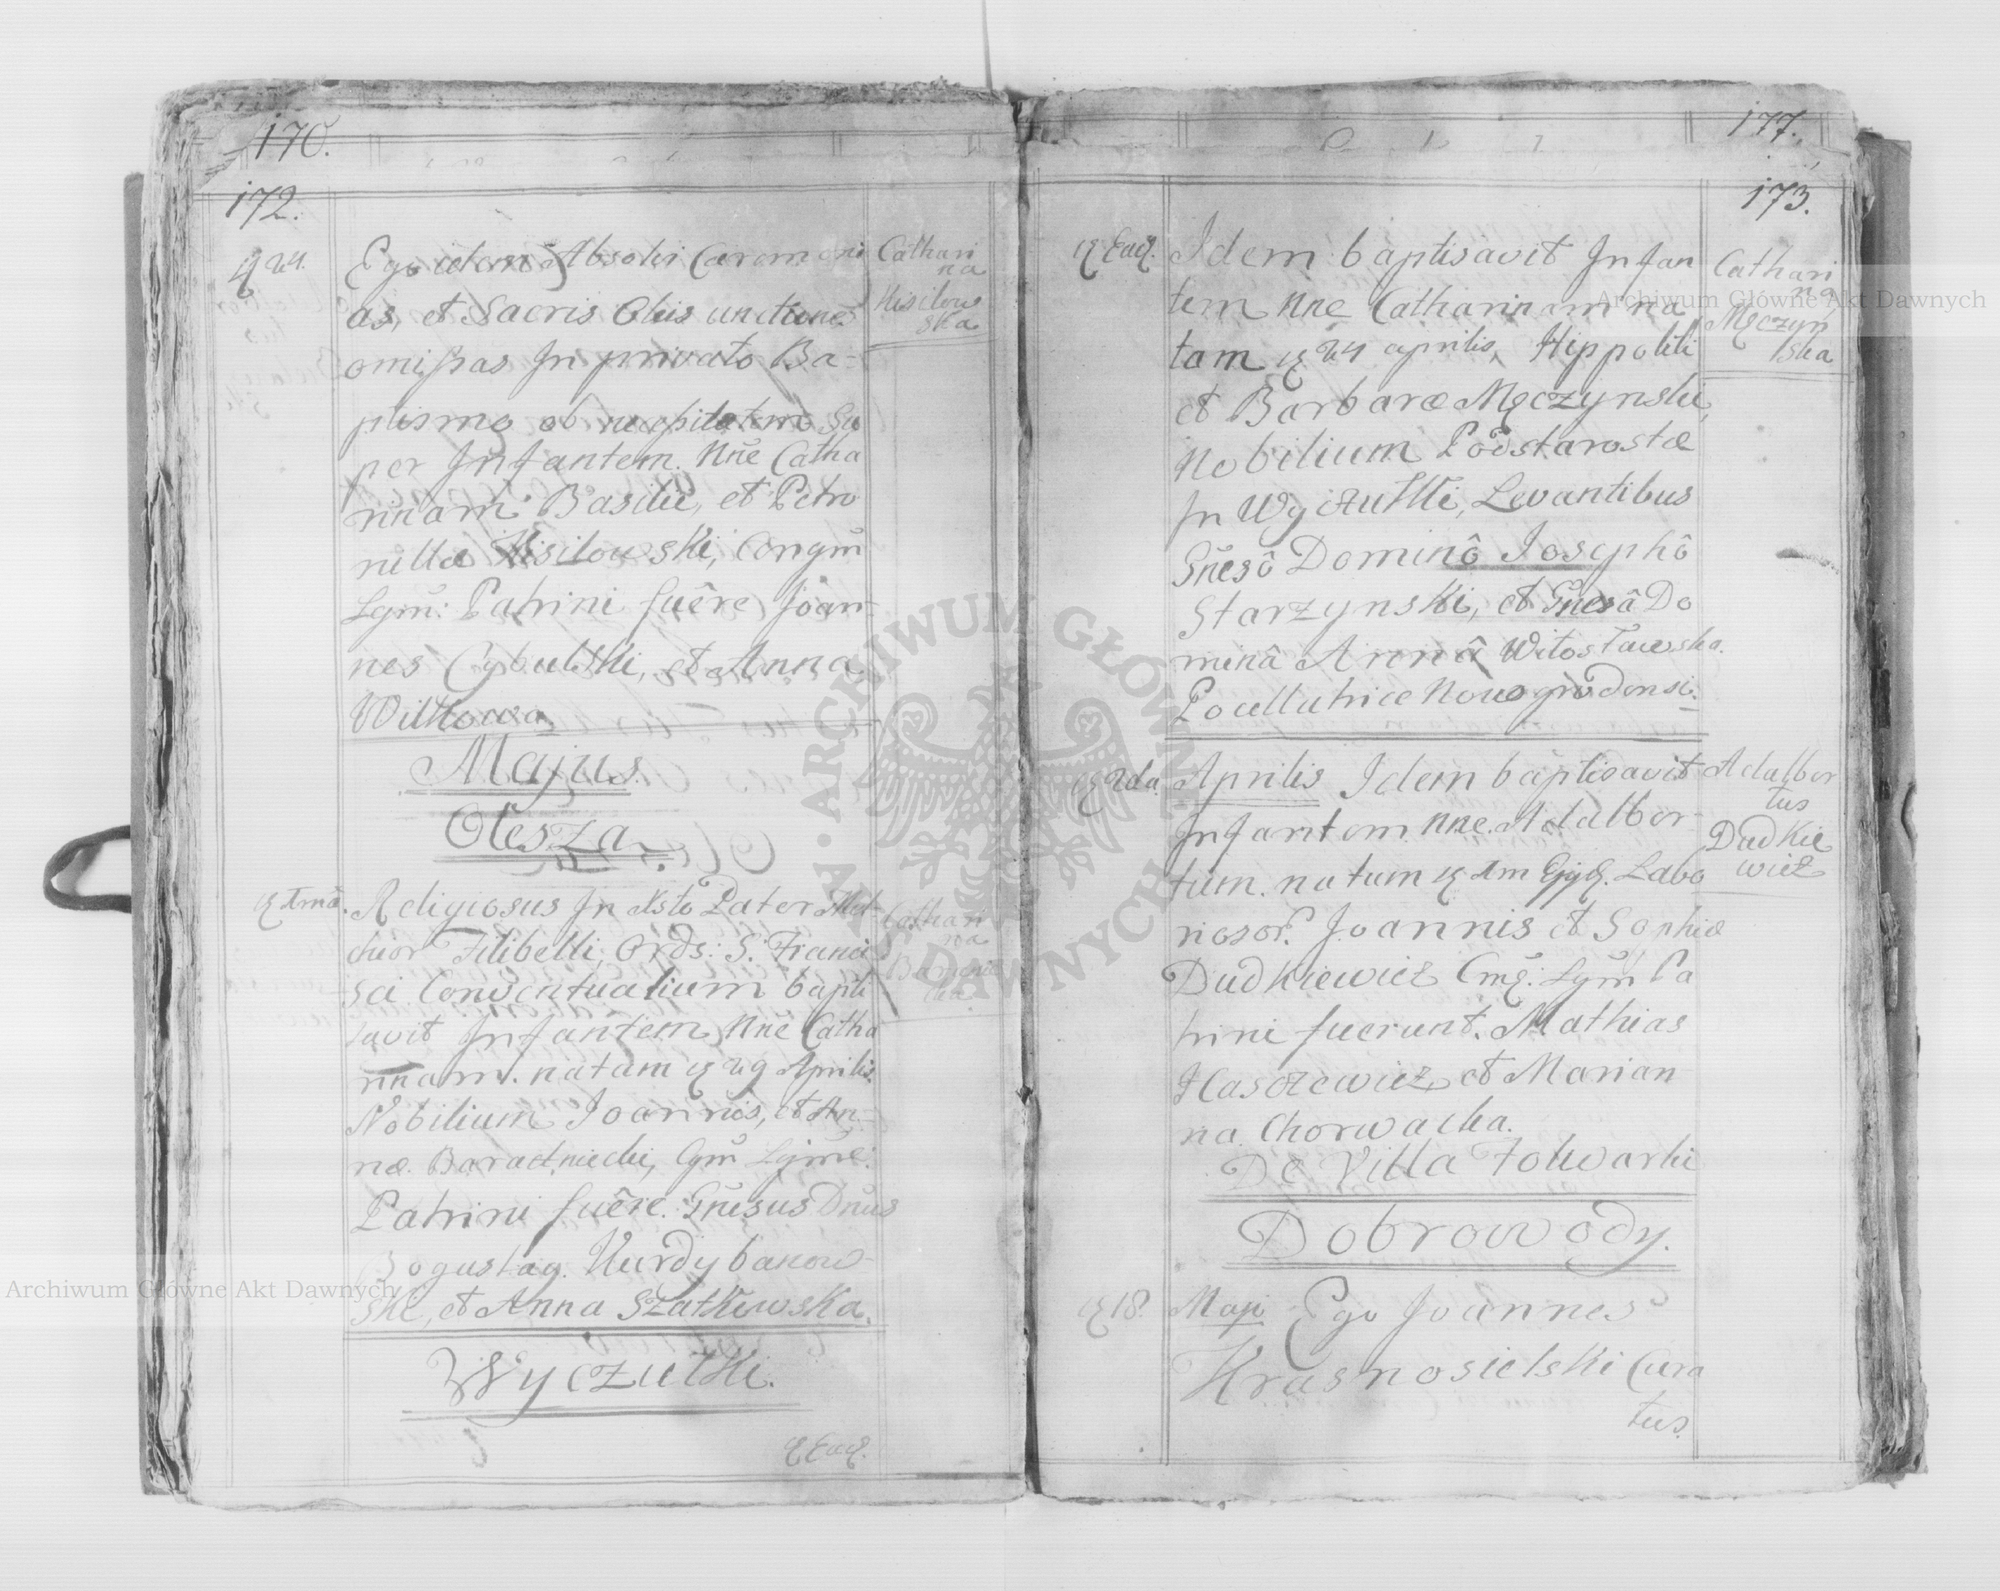 170.
172.
24.
Ego idem Absolvi Caremoni
as, et Sacris Oleis unctiones
omissas In privato Ba-
ptismo ob necessitatem Su
per Infantem. Nne Catha
rinam Basilii, et Petro
nillæ Kisilowski, Congm
Lgm: Patrini fuêre Joan-
nes Cybulski, et Anna
Wilkowa.
Cathari
na
Kisilow
ska
Majus.
Olesza.
1ma.
Religiosus In Xsto Pater Mel-
chior Filibelli, Ords: S. Franci
sci Conventualium bapti
savit Infantem Nne Catha
rinam. natam 29 Aprilis.
Nobilium Joannis, et An-
næ. Baractniecki, Cgm Lgme:
Patrini fuêre. Gnesus Dnus
Bogusław Kurdybanow-
ski, et Anna Szatkowska.
Cathari
na
Wyczułki.
Eadẽ.
177.
173.
Eadẽ. Idem baptisavit Infan
tem Nne Catharinam na
tam 24 aprilis, Hippoliti
et Barbaræ Męczynski,
Nobilium Podstarostæ
In Wyczułki, Levantibus
Gnesô Dominô Josephô
Starzynski, et Gnesâ Do
minâ Annâ Witosławska.
Pocillatrice Nowogrodensi.
Cathari
na
Męczyn
ska
2da. Aprilis Idem baptisavit
Infantem Nne. Adalber-
tum. natum 1m Ejq. Labo
riosor. Joannis et Sophiæ
Dudkiewicz Cmg: Lgm Pa
trini fuerunt. Mathias
Hasczewicz, et Marian-
na Chorwacka.
Adalber
tus
Dudkie
wicz
De Villa Folwarki
Dobrowody.
18. Maji Ego Joannes
Krasnosielski Cura
tus.
Archiwum Główne Akt Dawnych
Archiwum Główne Akt Dawnych
ARCHIWUM GŁÓWNE AKT DAWNYCH